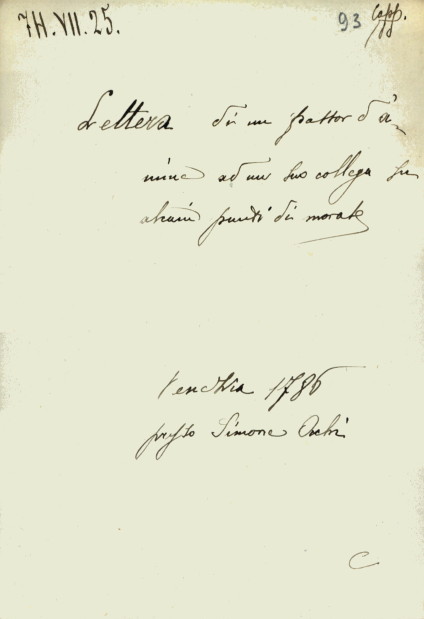 7H.VII.25.
93
Lettera di un pastor d'a-
nime ad un suo collega su
alcuni punti di morale
Venezia 1786
presso Simone Occhi
C